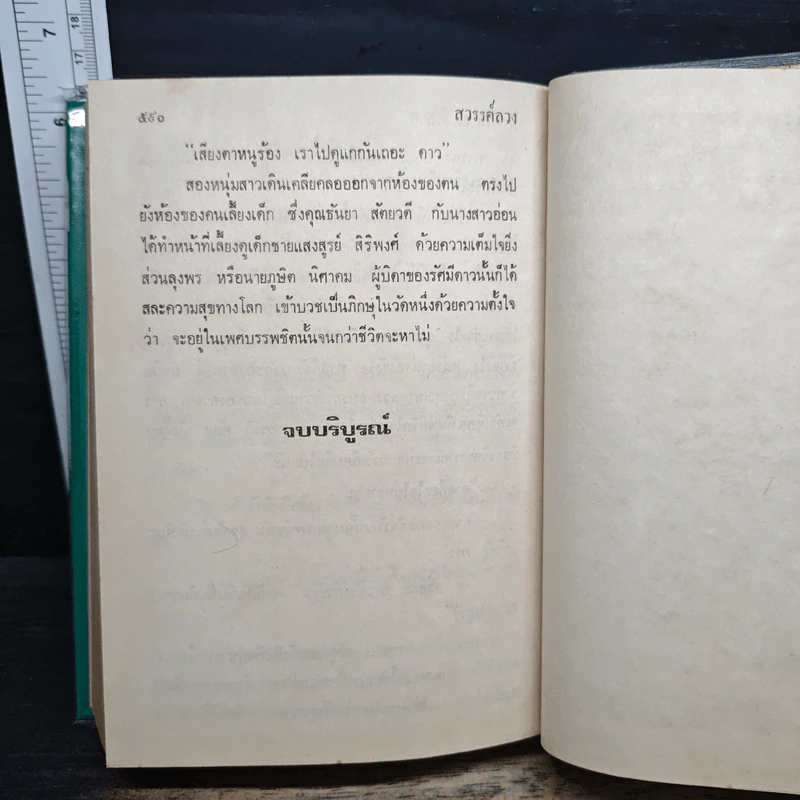 7
18
17
6
๕๙๐ สวรรค์ลวง
"เสียงตาหนูร้อง เราไปดูแกกันเถอะ ดาว"
สองหนุ่มสาวเดินเคลียคลอออกจากห้องของตน ตรงไป
ยังห้องของคนเลี้ยงเด็ก ซึ่งคุณธันยา สัตยวดี กับนางสาวอ่อน
ได้ทำหน้าที่เลี้ยงดูเด็กชายแสงสูรย์ สิริพงศ์ ด้วยความเต็มใจยิ่ง
ส่วนลุงพร หรือนายภูษิต นิศาคม ผู้บิดาของรัศมีดาวนั้นก็ได้
สละความสุขทางโลก เข้าบวชเป็นภิกษุในวัดหนึ่งด้วยความตั้งใจ
ว่า จะอยู่ในเพศบรรพชิตนั้นจนกว่าชีวิตจะหาไม่
จบบริบูรณ์